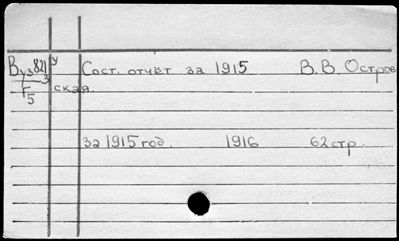 Вуз821 у Сост. отчёт за 1915 В.В. Остров
3
Г5 ская.
за 1915 год. 1916 62 стр.